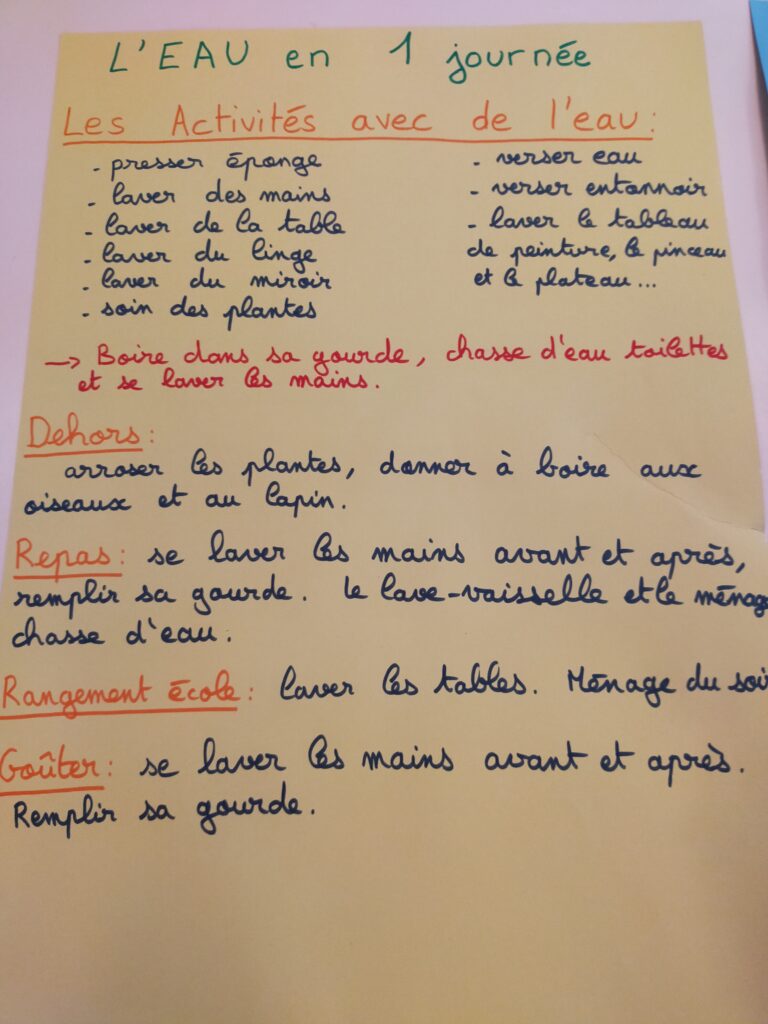 L'EAU en 1 journée
Les Activités avec de l'eau :
- presser éponge
- laver des mains
- laver de la table
- laver du linge
- laver du miroir
- soin des plantes
- verser eau
- verser entonnoir
- laver le tableau
de peinture, le pinceau
et le plateau...
→ Boire dans sa gourde, chasse d'eau toilettes
et se laver les mains.
Dehors :
arroser les plantes, donner à boire aux
oiseaux et au lapin.
Repas : se laver les mains avant et après,
remplir sa gourde. Le lave-vaisselle et le ménage
chasse d'eau.
Rangement école : laver les tables. Ménage du soir
Goûter : se laver les mains avant et après.
Remplir sa gourde.